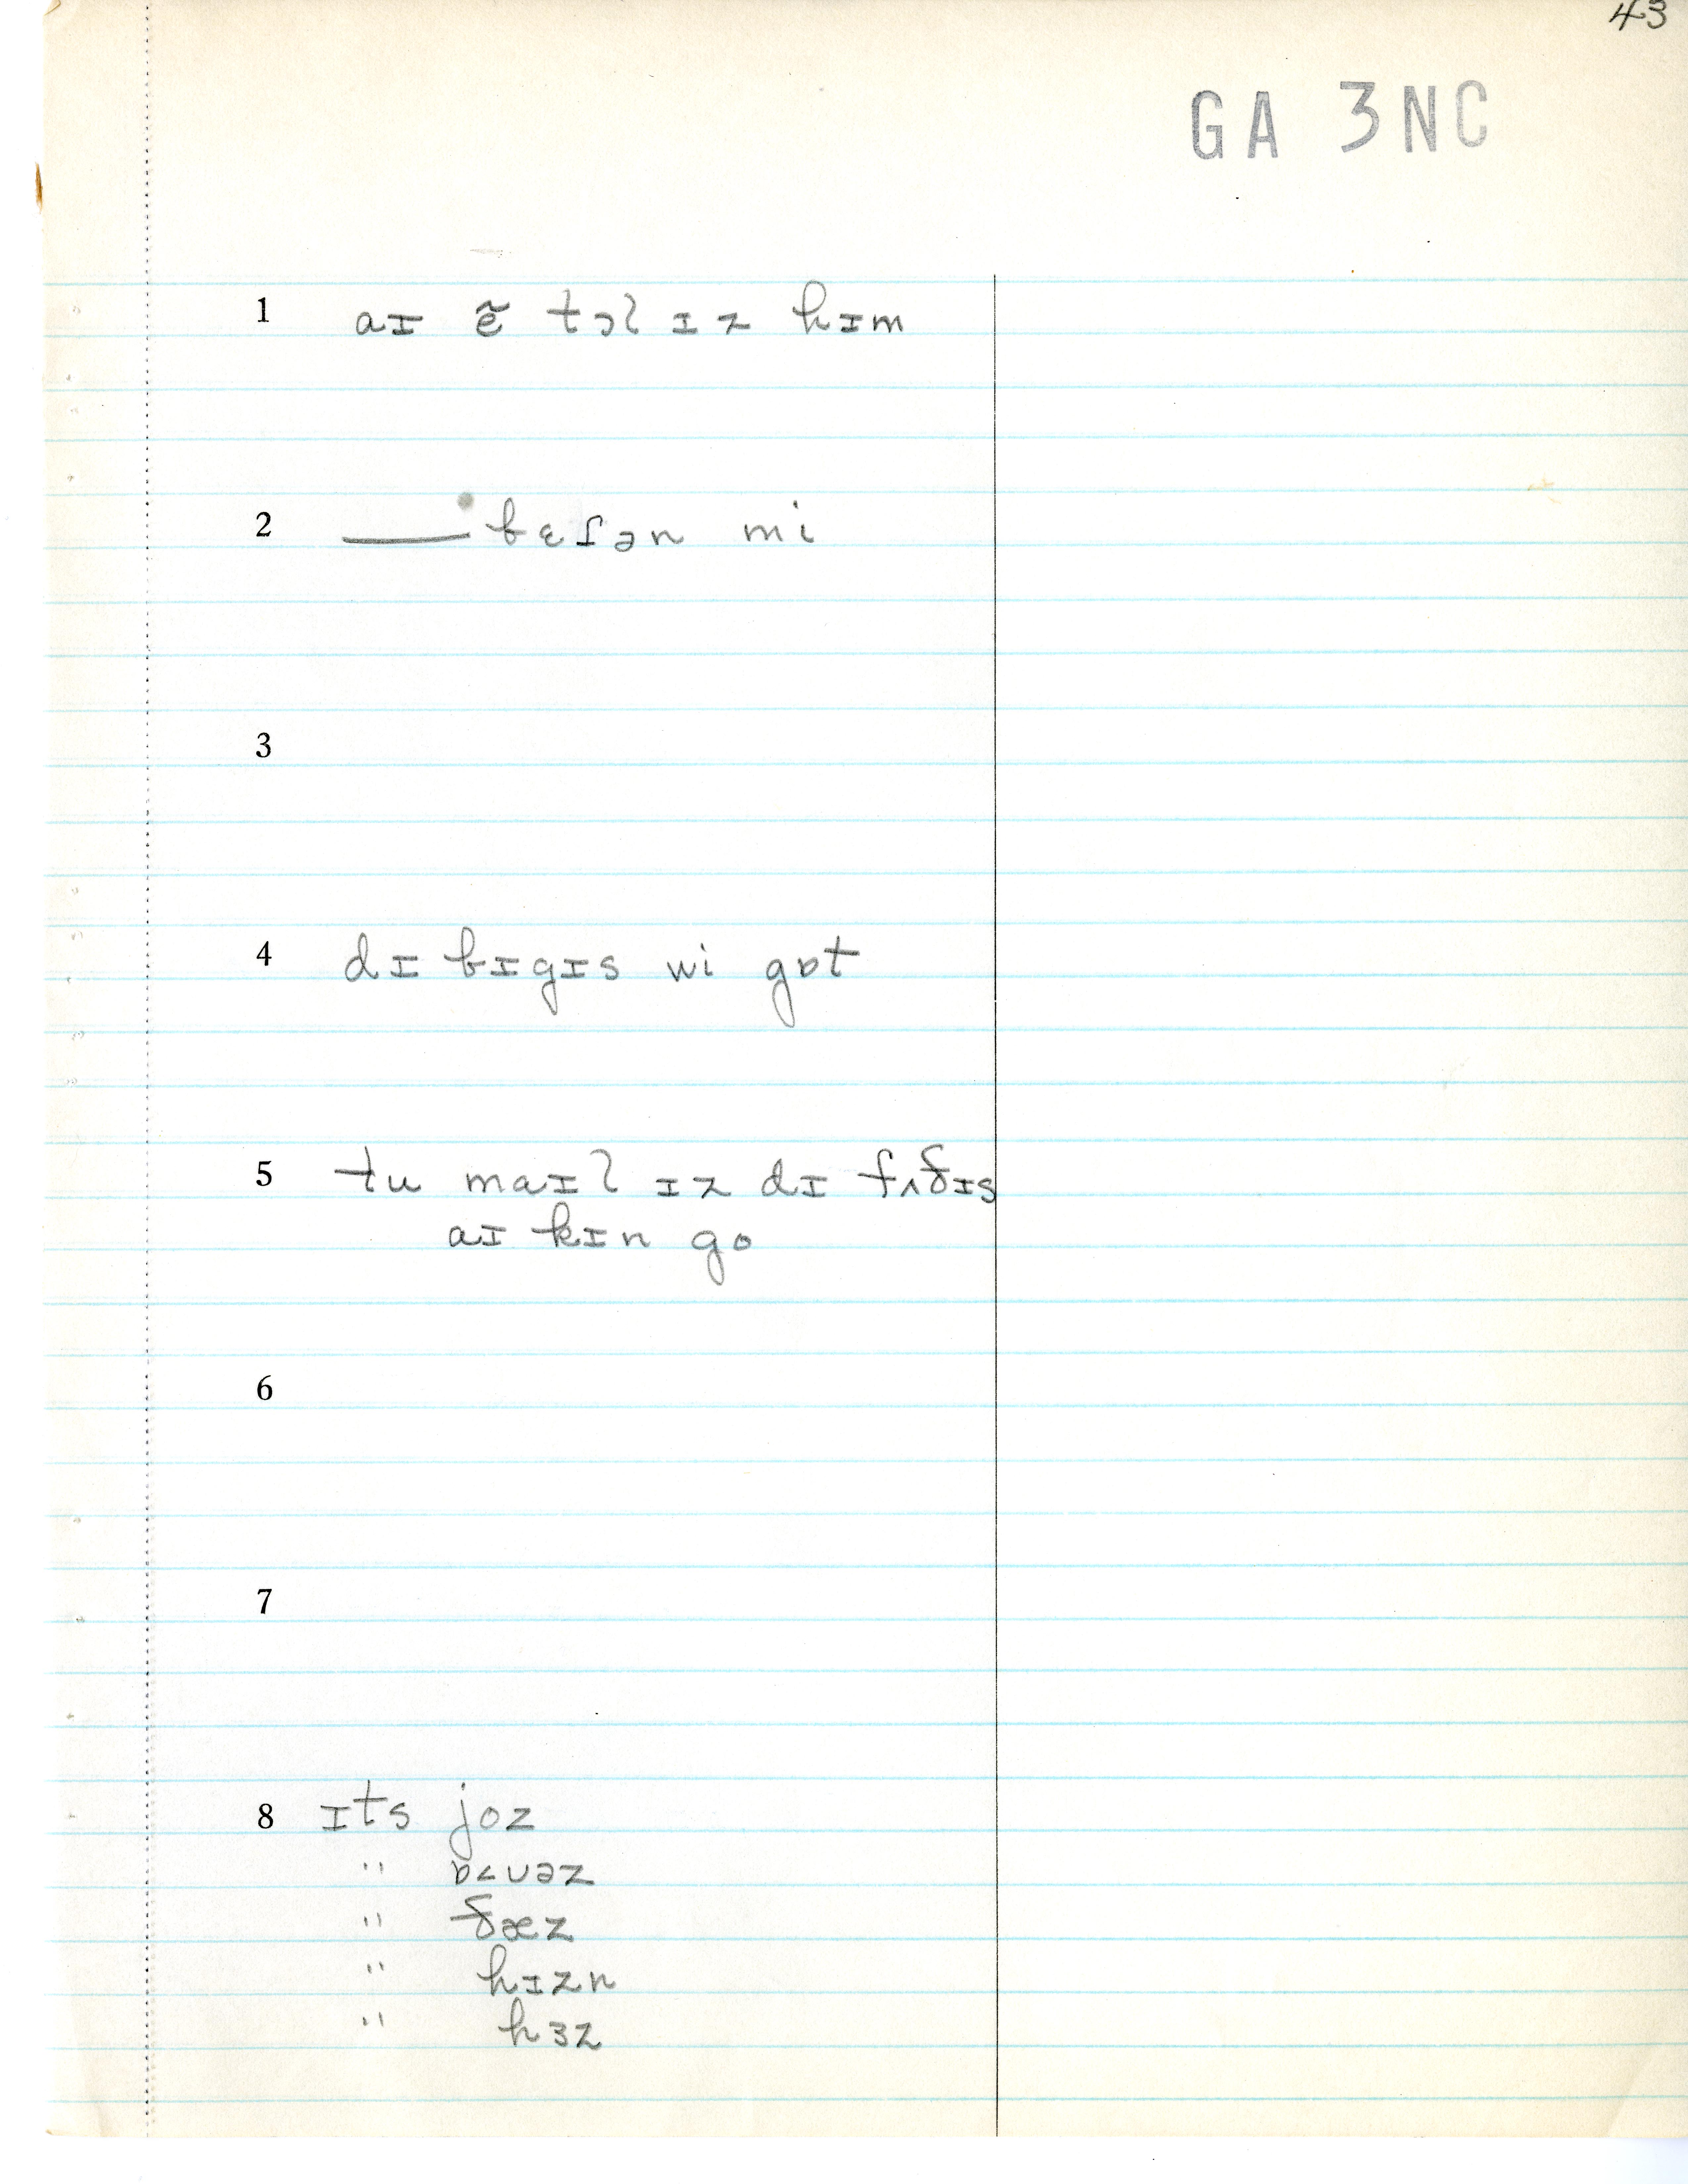 43
GA 3NC
1 aɪ ẽ tɔl ɪz hɪm
2 ___ bɛɾən mi
3
4 dɪ bɪgɪs wi gɒt
5 tu maɪl ɪz dɪ fʌðɪs
aɪ kɪn go
6
7
8 ɪts joz
" ɒ<ʊəz
" ðæz
" hɪzn
" hɜz